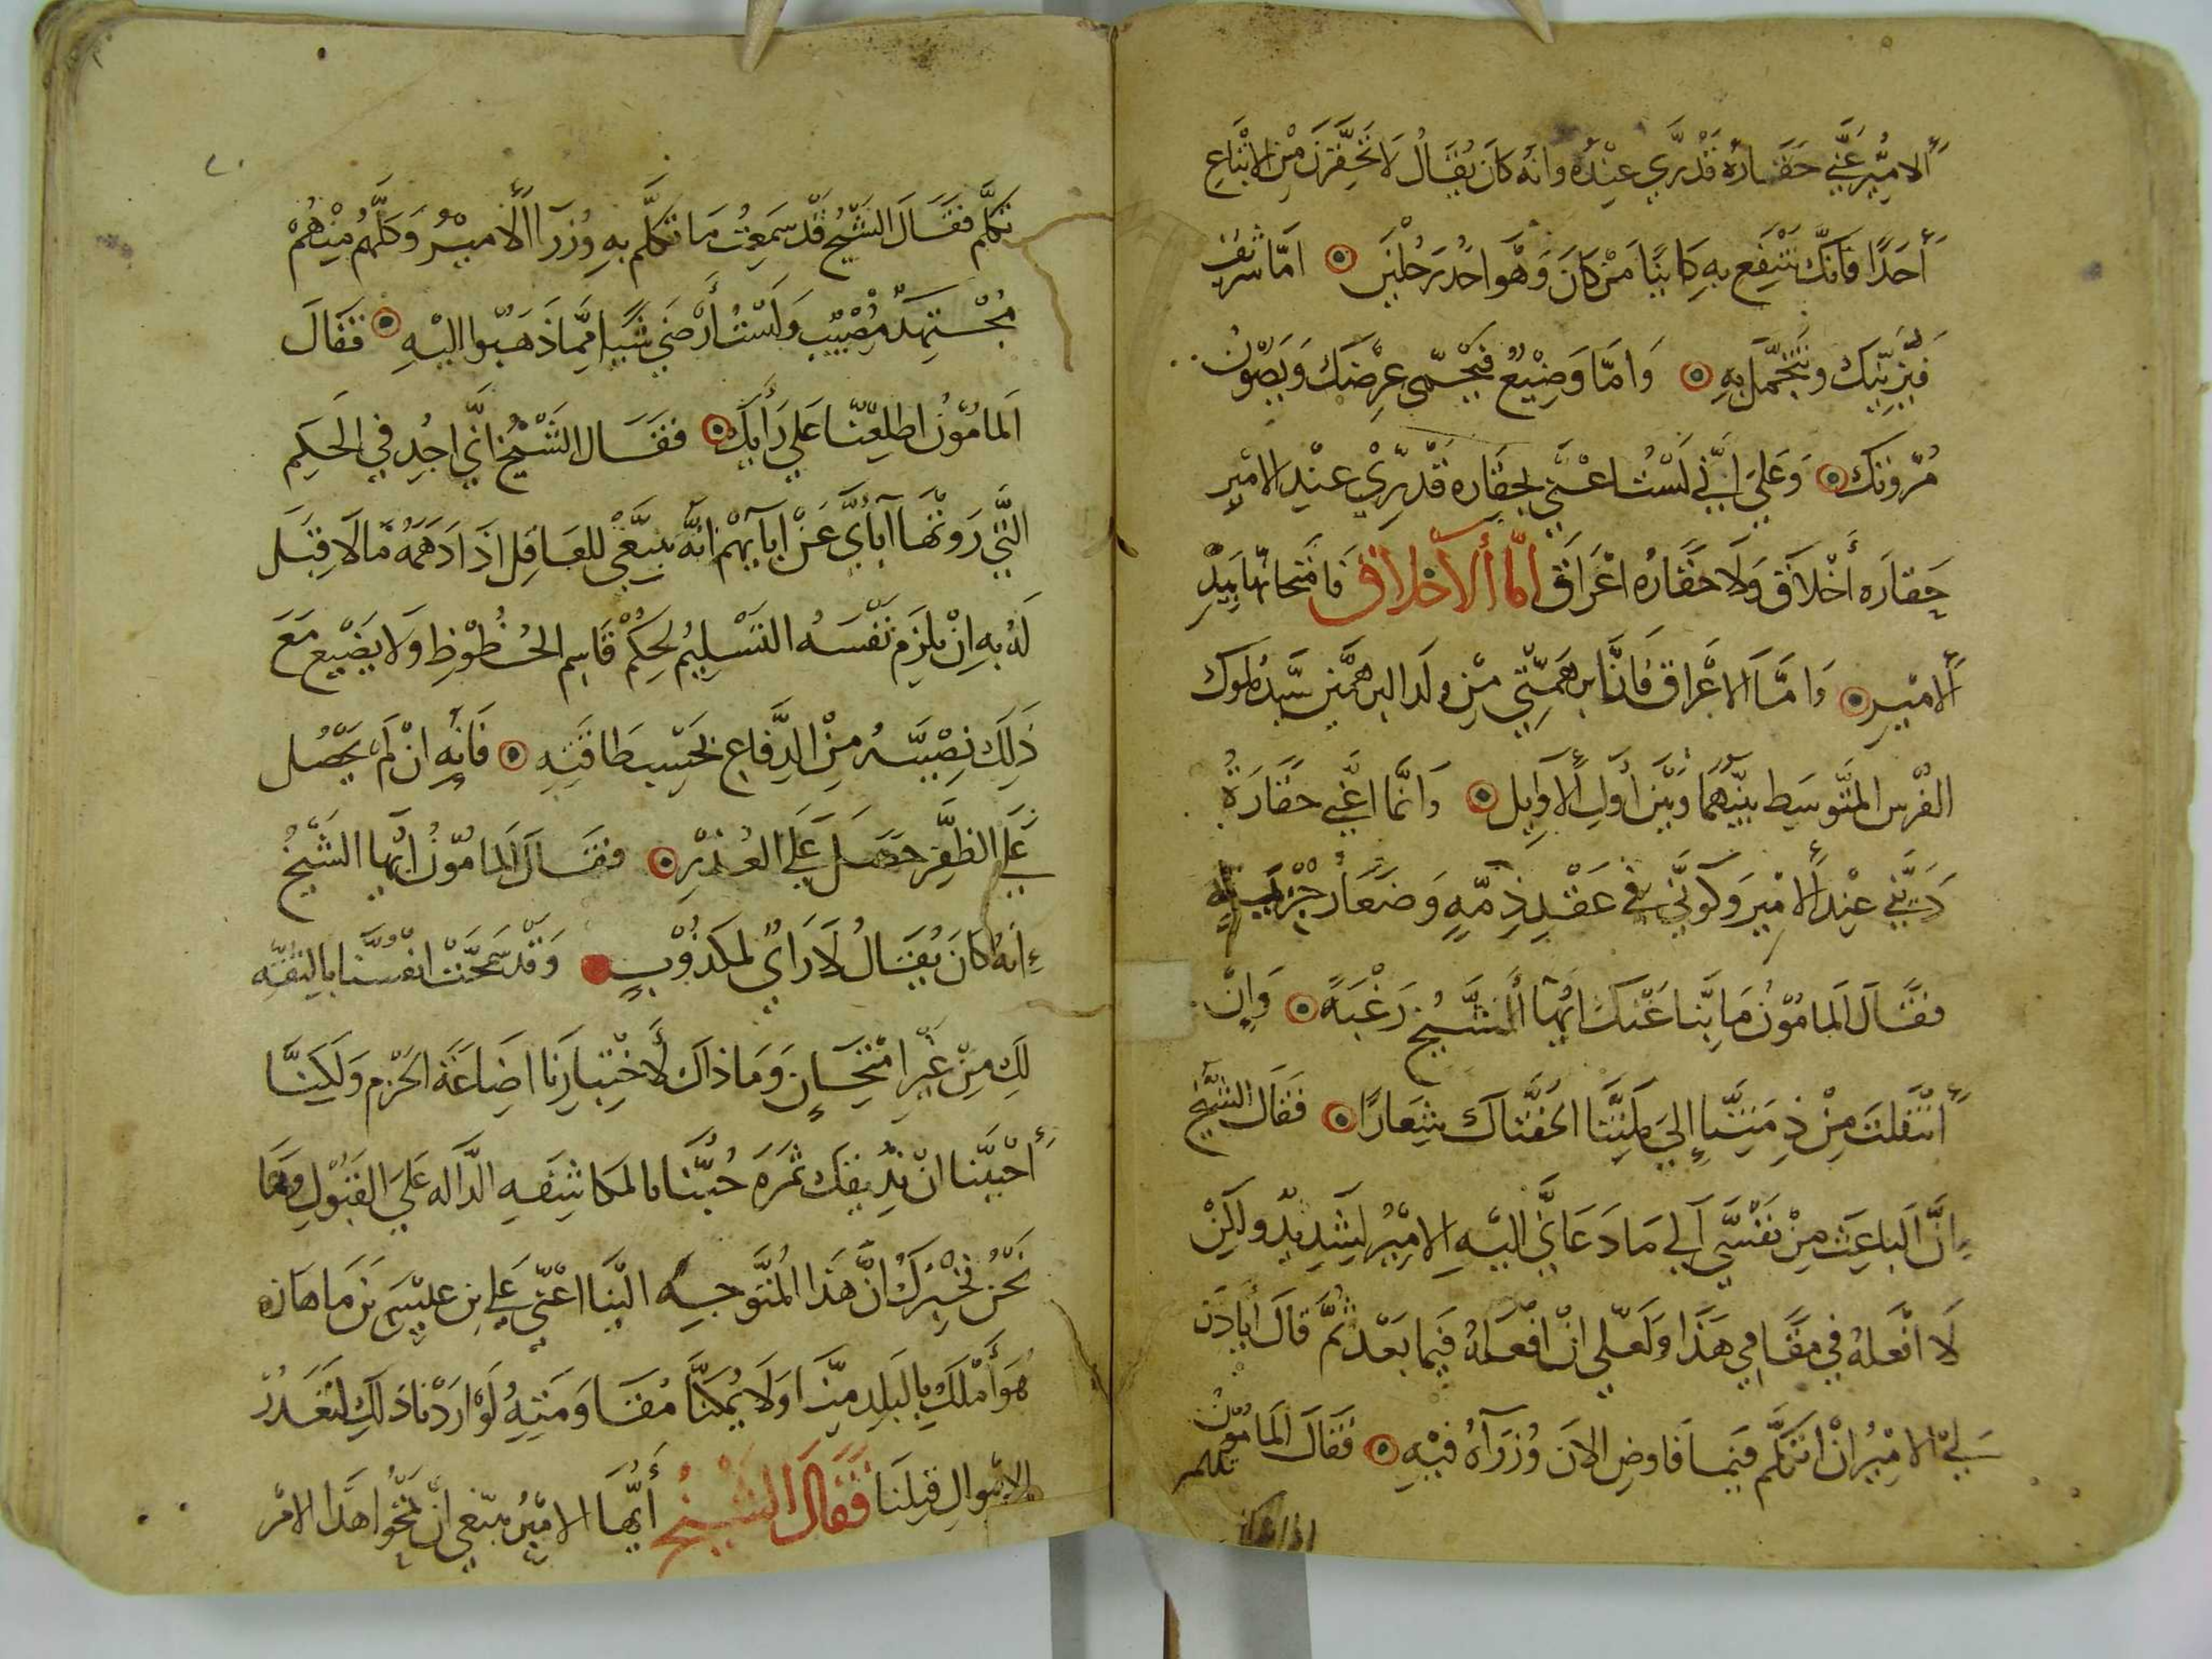 ألامير عني حقاره قدري عنده وانه كان يقال لا تحقرن من الاتباع
أحدا فانك تنتفع به كاينا من كان وهو احد رجلين اما شريف
فيزينك وتتجمل به واما وضيع فيحمى عرضك ويصون
مروتك وعلى انني لست اعني بحقاره قدري عند الامير
حقاره أخلاق ولا حقاره اعراق اما ألاخلاق فامتحانها بيد
ألامير واما الاعراق فانا برهمني من ولد البرهمن سيد ملوك
الفرس المتوسط بينهما وبين أول ألاوايل وانما اعني حقارة
ديني عند ألامير وكوني في عقد ذمه وصغار جزيه
فقال المامون ما بنا عنك ايها ألشيخ رغبة وان
انتقلت من ذمتنا إلى ملتنا الحفناك شعارا فقال الشيخ
ان الباعث من نفسي الى ما دعاني اليه الامير لشديد ولكن
لا افعله في مقامي هذا ولعلي ان افعله فيما بعد ثم قال أياذن
لي الامير ان اتكلم فيما فاوض الان وزرآه فيه فقال المامون
تكلم
تكلم فقال الشيخ قد سمعت ما تكلم به وزرا ألامير وكلهم منهم
مجتهد مصيب ولست أرضى شيا مما ذهبوا اليه فقال
المامون اطلعنا على رأيك فقال الشيخ اني اجد في الحكم
التي روتها اباي عن ابايهم انه ينبغي للعاقل اذا دهمه ما لا قبل
له به ان يلزم نفسه التسليم لحكم قاسم الحظوظ ولا يضيع مع
ذلك نصيبه من الدفاع بحسب طاقته فانه ان لم يحصل
على الظفر حصل على العذر فقال المامون ايها الشيخ
انه كان يقال لا راي لمكذوب وقد سمحت انفسنا بالثقه
لك من غير امتحان وما ذاك لأختيارنا اضاعة الحزم ولكننا
أحببنا ان نذيقك ثمره حبنا بالمكاشفه الداله على القبول وها
نحن نخبرك ان هذا المتوجه الينا اعني علي بن عيسى بن ماهان
هو أملك بالبلد منا ولا يمكنا مقاومته لو اردنا ذلك لتعذر
الاموال قبلنا فقال الشيخ أيها الامير ينبغي ان تمحوا هذا الامر